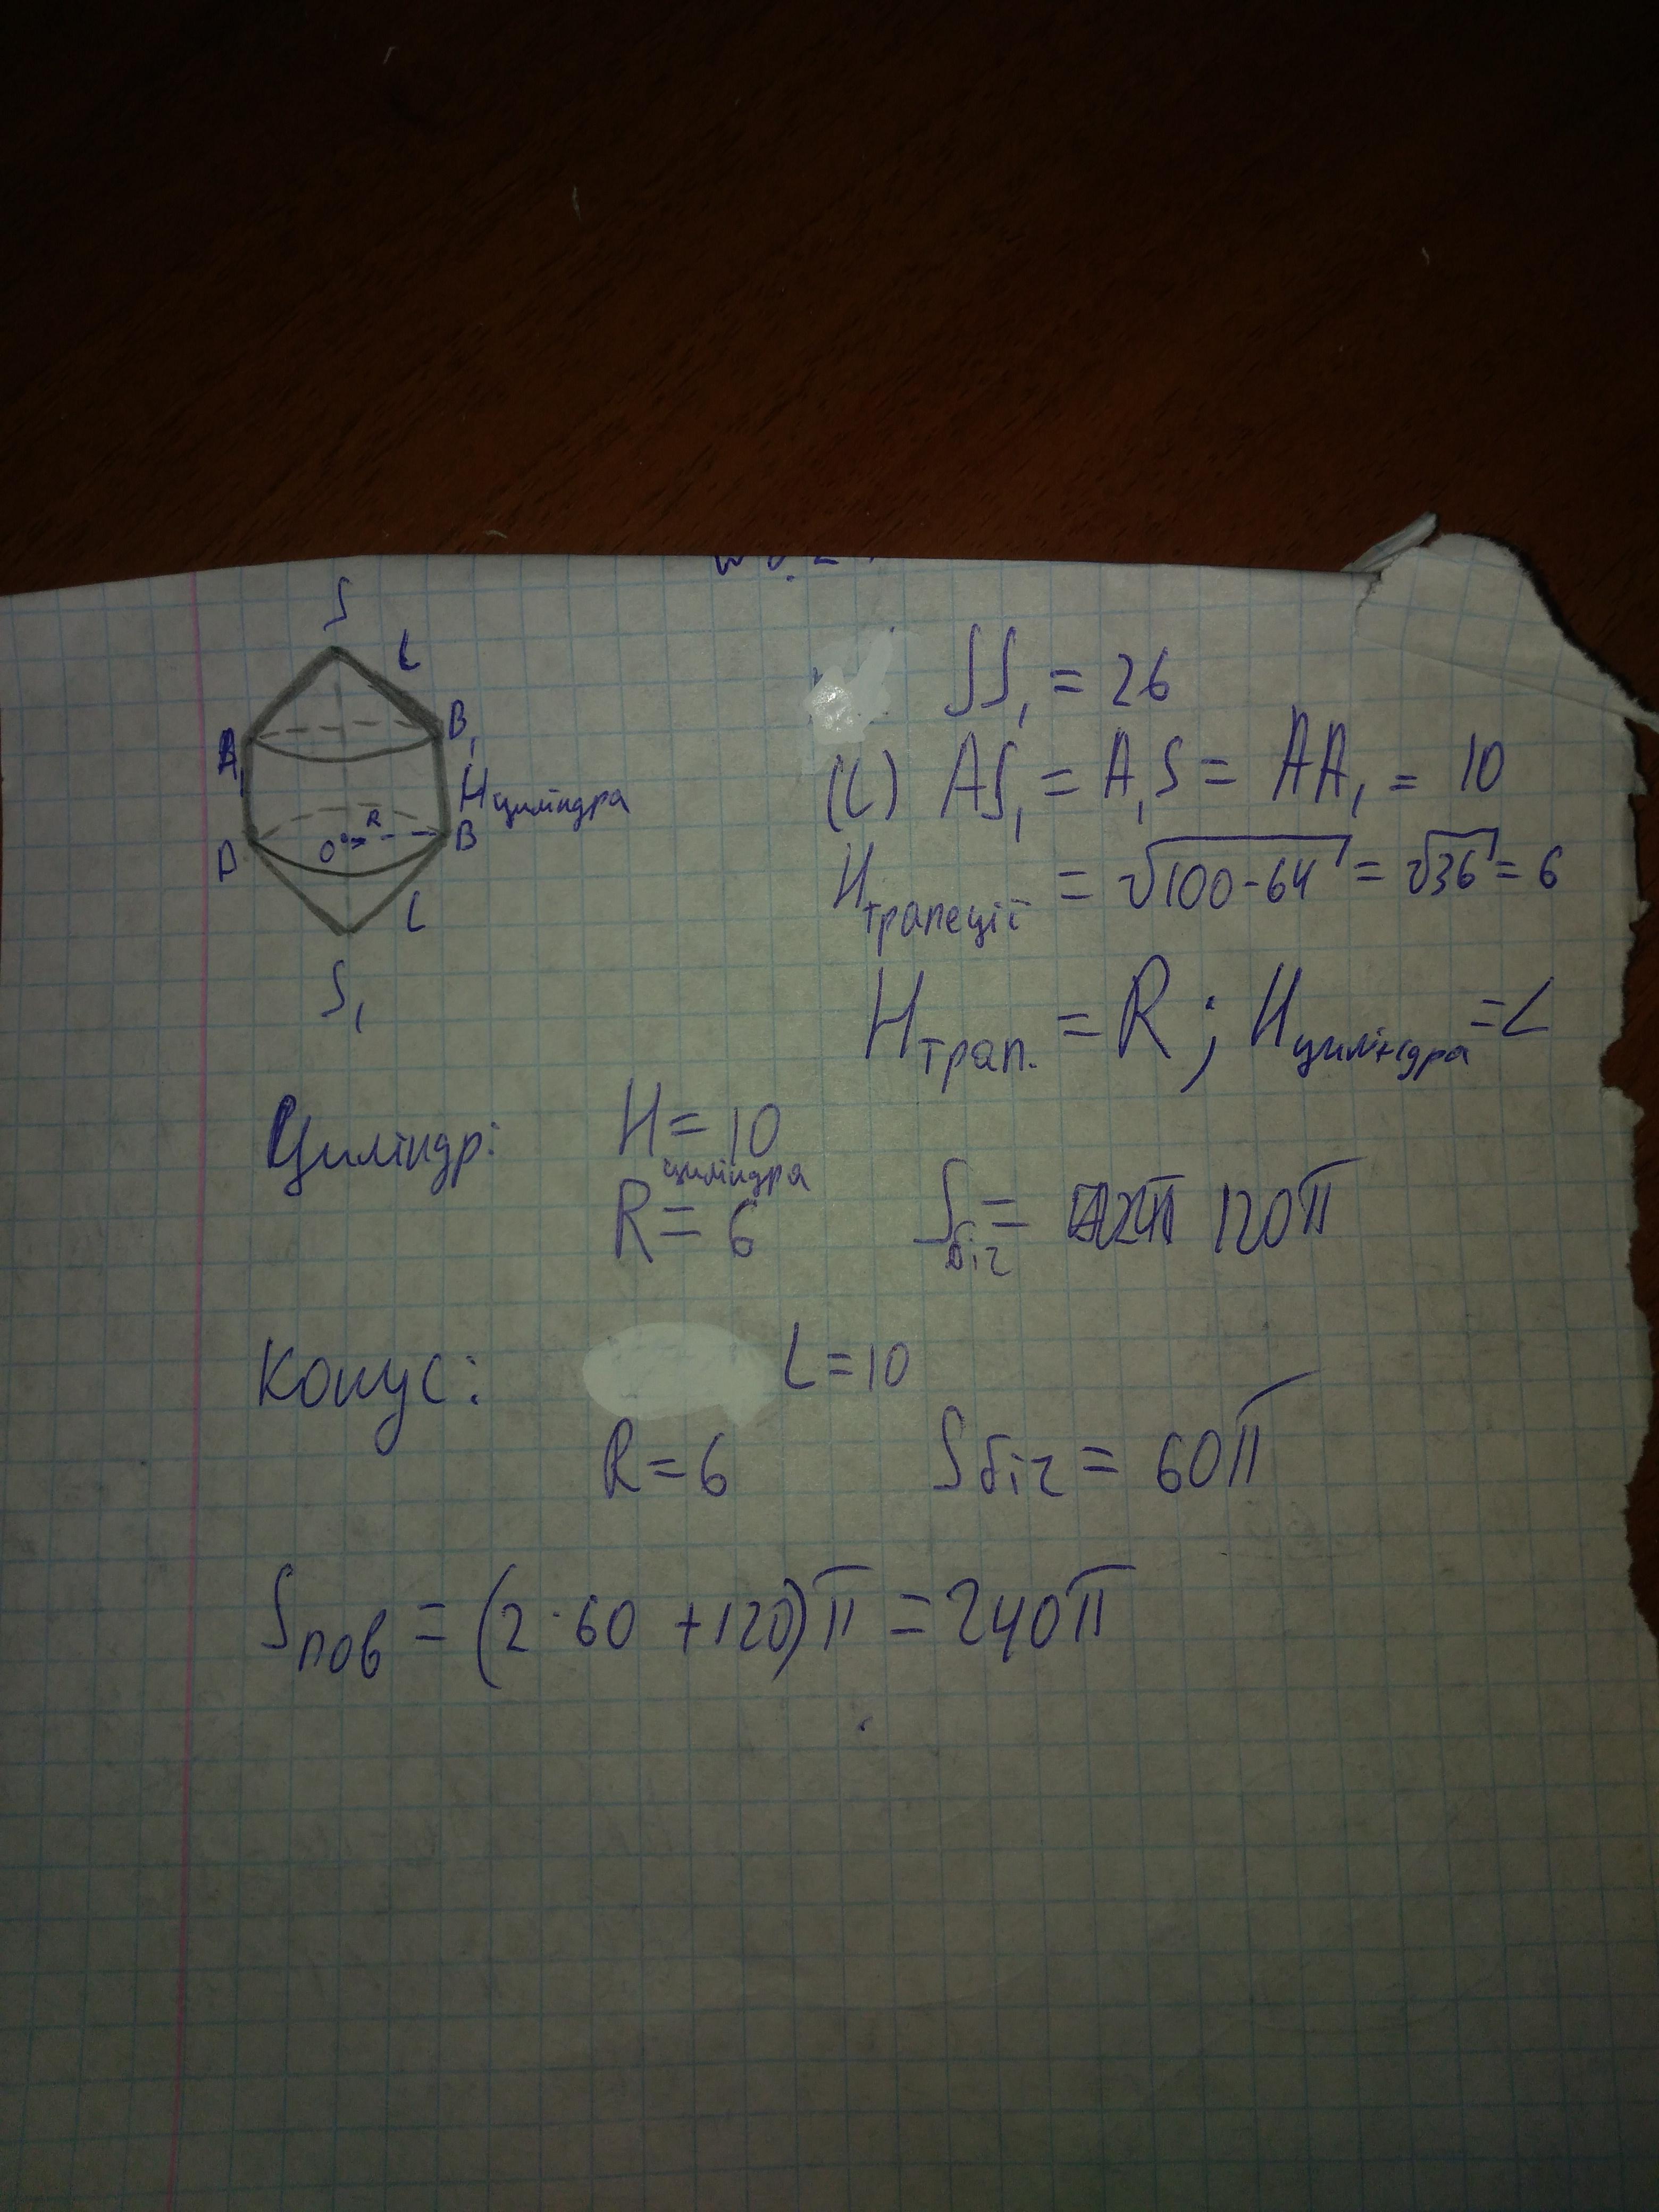 S
L
A₁
B₁
H циліндра
R
O
A
B
L
S₁
SS₁ = 26
(L) AS₁ = A₁S = AA₁ = 10
H трапеції = √100-64 = √36 = 6
H трап. = R ; H циліндра = L
Циліндр: H циліндра = 10
R = 6 S біч = 120π
Конус: L = 10
R = 6 S біч = 60π
S пов = (2·60 + 120)π = 240π